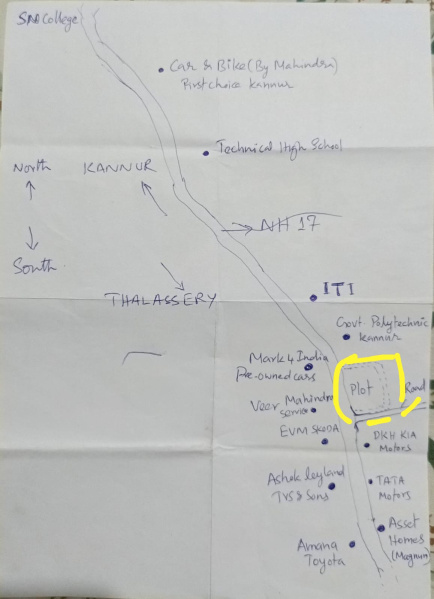 SN College
Car & Bike (By Mahindra)
First choice Kannur
Technical High School
North
KANNUR
NH 17
South
ITI
THALASSERY
Govt. Polytechnic
Kannur
Mark 4 India
Pre-owned cars
Plot
Road
Veer Mahindra
service
EVM SKODA
DKH KIA
Motors
Ashok leyland
TVS & Sons
TATA
Motors
Asset
Homes
(Magnum)
Amana
Toyota